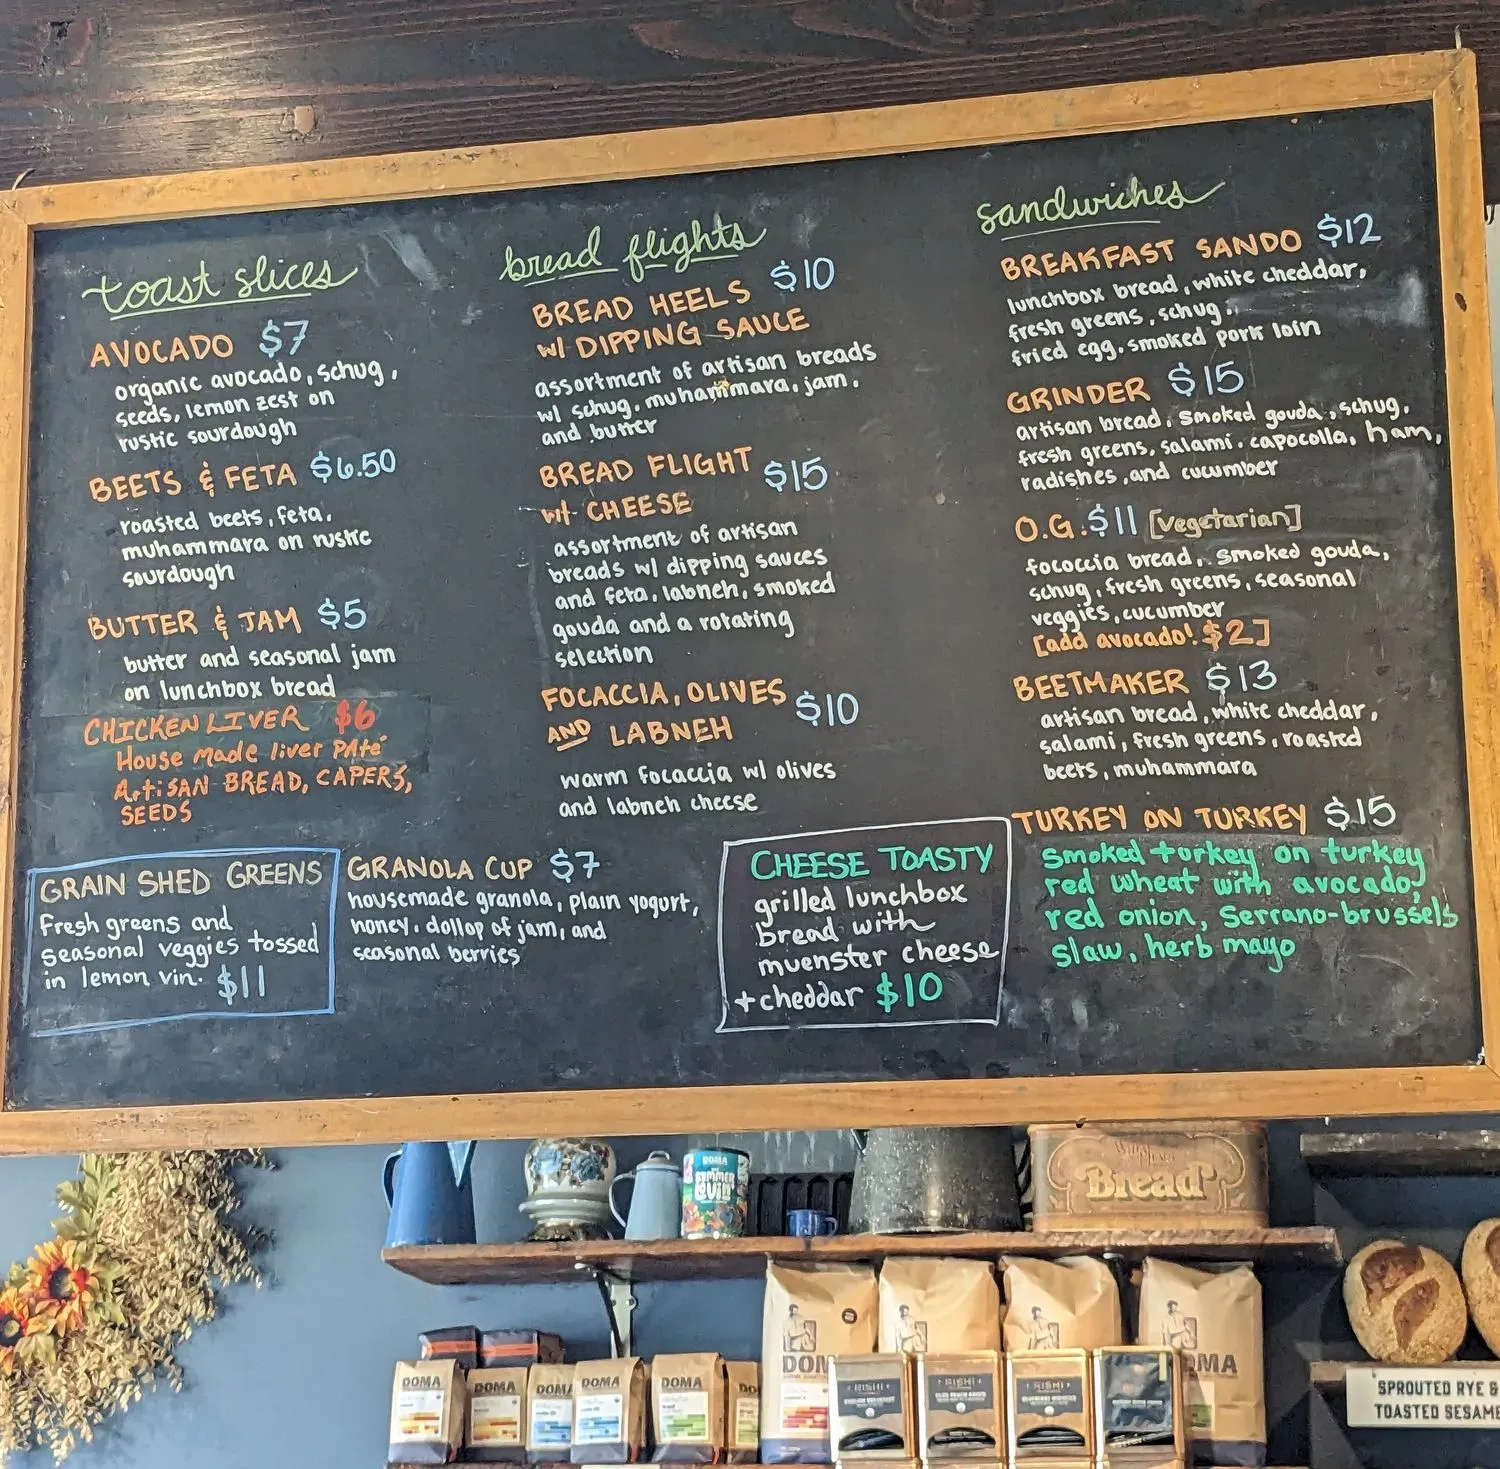 toast slices
AVOCADO $7
organic avocado, schug,
seeds, lemon zest on
rustic sourdough
BEETS & FETA $6.50
roasted beets, feta,
muhammara on rustic
sourdough
BUTTER & JAM $5
butter and seasonal jam
on lunchbox bread
CHICKEN LIVER $6
House made liver PAté
ArtiSAN BREAD, CAPERS,
SEEDS
bread flights
BREAD HEELS $10
w/ DIPPING SAUCE
assortment of artisan breads
w/ schug, muhammara, jam,
and butter
BREAD FLIGHT $15
wit CHEESE
assortment of artisan
breads w/ dipping sauces
and feta, labneh, smoked
gouda and a rotating
selection
FOCACCIA, OLIVES $10
AND LABNEH
warm focaccia w/ olives
and labneh cheese
sandwiches
BREAKFAST SANDO $12
lunchbox bread, white cheddar,
fresh greens, schug,
fried egg, smoked pork loin
GRINDER $15
artisan bread, smoked gouda, schug,
fresh greens, salami, capocolla, ham,
radishes, and cucumber
O.G. $11 [vegetarian]
fococcia bread, smoked gouda,
schug, fresh greens, seasonal
veggies, cucumber
[add avocado! $2]
BEETMAKER $13
artisan bread, white cheddar,
salami, fresh greens, roasted
beets, muhammara
TURKEY ON TURKEY $15
smoked turkey on turkey
red wheat with avocado,
red onion, Serrano-brussels
slaw, herb mayo
GRAIN SHED GREENS
fresh greens and
seasonal veggies tossed
in lemon vin. $11
GRANOLA CUP $7
housemade granola, plain yogurt,
honey, dollop of jam, and
seasonal berries
CHEESE TOASTY
grilled lunchbox
bread with
muenster cheese
+ cheddar $10
DOMA
SUMMER
LOVIN'
Bread
DOMA
DOMA
DOMA
DOMA
DOMA
DO
DOM
OMA
RISHI
RISHI
RISHI
SPROUTED RYE &
TOASTED SESAME